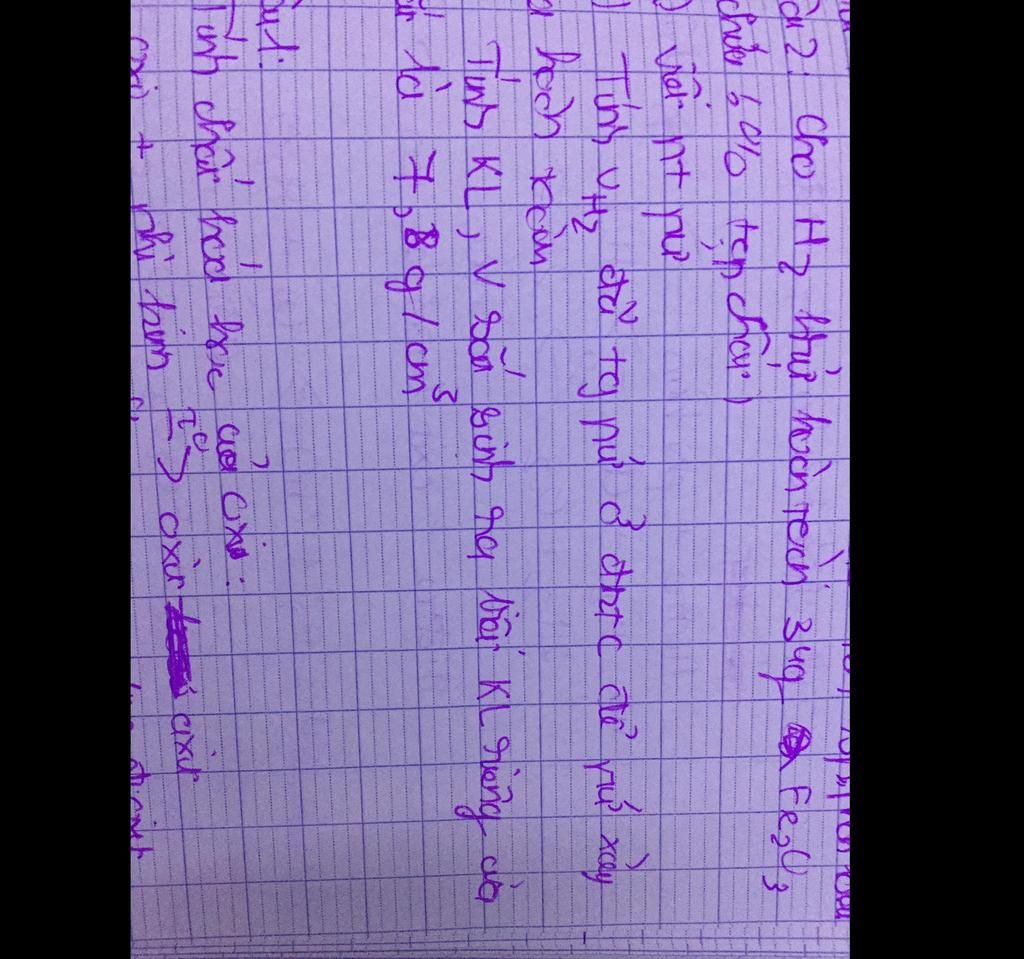 2: Cho H2 khử hoàn toàn 34g Fe2O3
chứa 60% tạp chất)
viết pt pư
Tính VH2 đủ tg pứ ở đktc để pứ xảy
hoàn toàn
Tính KL, V sắt sinh ra biết KL riêng của
là 7,8 g/cm3
1:
Tính chất hóa học của oxi:
oxi + phi kim to-> oxit axit